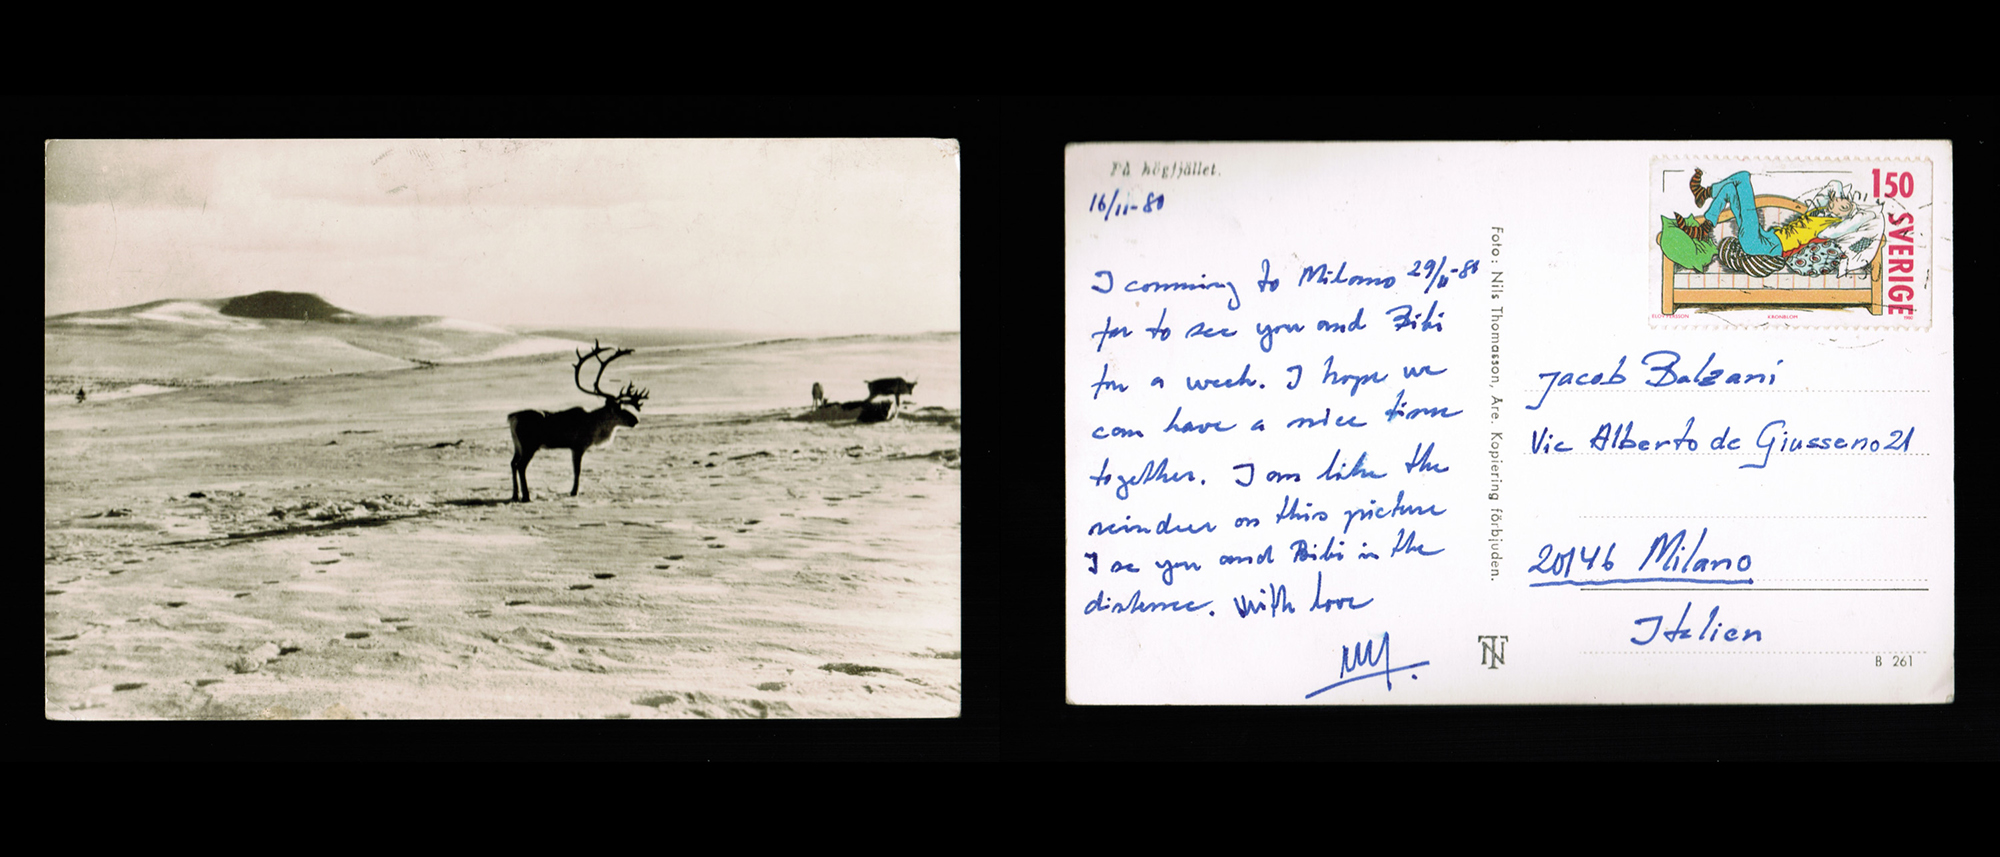 På högfjället.
16/11-80
I comming to Milano 29/11-80
for to see you and Bibi
for a week. I hope we
can have a nice time
together. I am like the
reindeer on this picture
I se you and Bibi in the
distence. With love
Foto: Nils Thomasson, Åre. Kopiering förbjuden.
NT
150
SVERIGE
ELOV PERSSON
KRONBLOM
Jacob Balzani
Via Alberto de Giusseno 21
20146 Milano
Italien
B 261